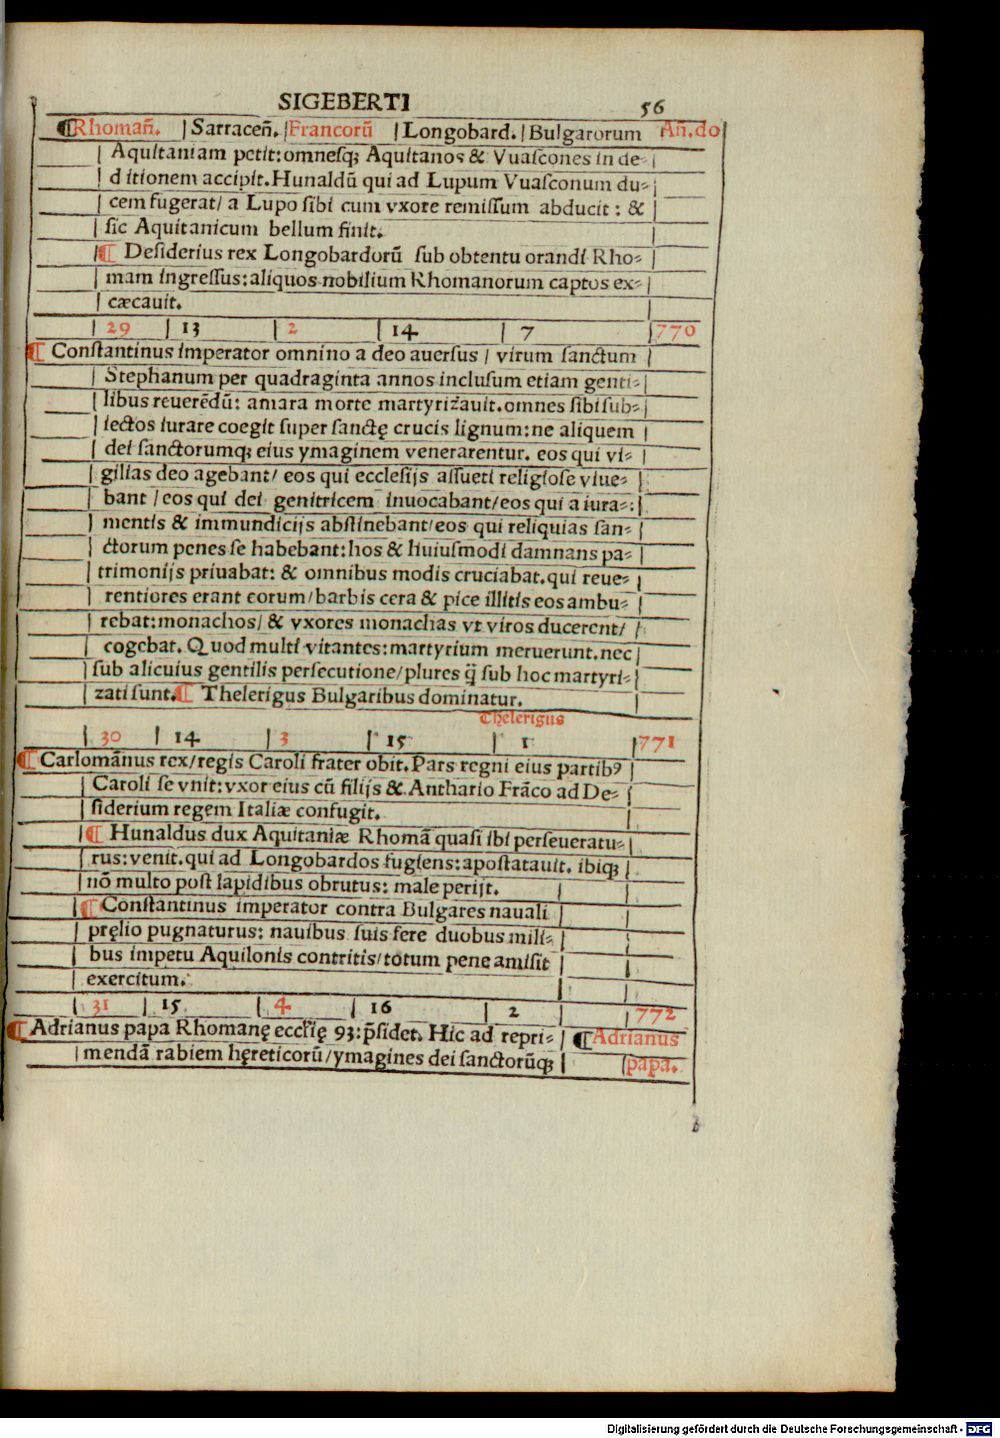 SIGEBERTI 56
¶Rhomañ. Sarraceñ. Francorũ Longobard. Bulgarorum Añ.do
Aquitaniam petit:omnesq; Aquitanos & Vuaſcones in de-
ditionem accipit.Hunaldũ qui ad Lupum Vuaſconum du-
cem fugerat/ a Lupo ſibi cum vxore remiſſum abducit : &
ſic Aquitanicum bellum finit.
¶ Deſiderius rex Longobardorũ ſub obtentu orandi Rho-
mam ingreſſus:aliquos nobilium Rhomanorum captos ex-
cæcauit.
29 13 2 14 7 770
¶ Conſtantinus imperator omnino a deo auerſus / virum ſanctum
Stephanum per quadraginta annos incluſum etiam genti-
libus reuerẽdũ: amara morte martyrizauit.omnes ſibi ſub-
iectos iurare coegit ſuper ſanctę crucis lignum:ne aliquem
dei ſanctorumq; eius ymaginem venerarentur. eos qui vi-
gilias deo agebant/ eos qui eccleſijs aſſueti religioſe viue-
bant / eos qui dei genitricem inuocabant/eos qui a iura-
mentis & immundicijs abſtinebant/eos qui reliquias ſan-
ctorum penes ſe habebant:hos & huiuſmodi damnans pa-
trimonijs priuabat: & omnibus modis cruciabat.qui reue-
rentiores erant eorum/barbis cera & pice illitis eos ambu-
rebat:monachos/ & vxores monachas vt viros ducerent/
cogebat. Quod multi vitantes:martyrium meruerunt.nec
ſub alicuius gentilis perſecutione/plures q̃ ſub hoc martyri-
zati ſunt.¶ Thelerigus Bulgaribus dominatur.
Thelerigus
30 14 3 15 1 771
¶Carlomãnus rex/regis Caroli frater obit.Pars regni eius partibꝰ
Caroli ſe vnit:vxor eius cũ filijs & Anthario Frãco ad De-
ſiderium regem Italiæ confugit.
¶ Hunaldus dux Aquitaniæ Rhomã quaſi ibi perſeueratu-
rus:venit.qui ad Longobardos fugiens:apoſtatauit. ibiq;
nõ multo poſt lapidibus obrutus: male perijt.
¶Conſtantinus imperator contra Bulgares nauali
pręlio pugnaturus: nauibus ſuis fere duobus mili-
bus impetu Aquilonis contritis/totum pene amiſit
exercitum.
31 15 4 16 2 772
¶Adrianus papa Rhomanę eccl̃ię 93:p̃ſidet. Hic ad repri- ¶Adrianus
mendã rabiem hęreticorũ/ymagines dei ſanctorũq; papa.
Digitalisierung gefördert durch die Deutsche Forschungsgemeinschaft - DFG